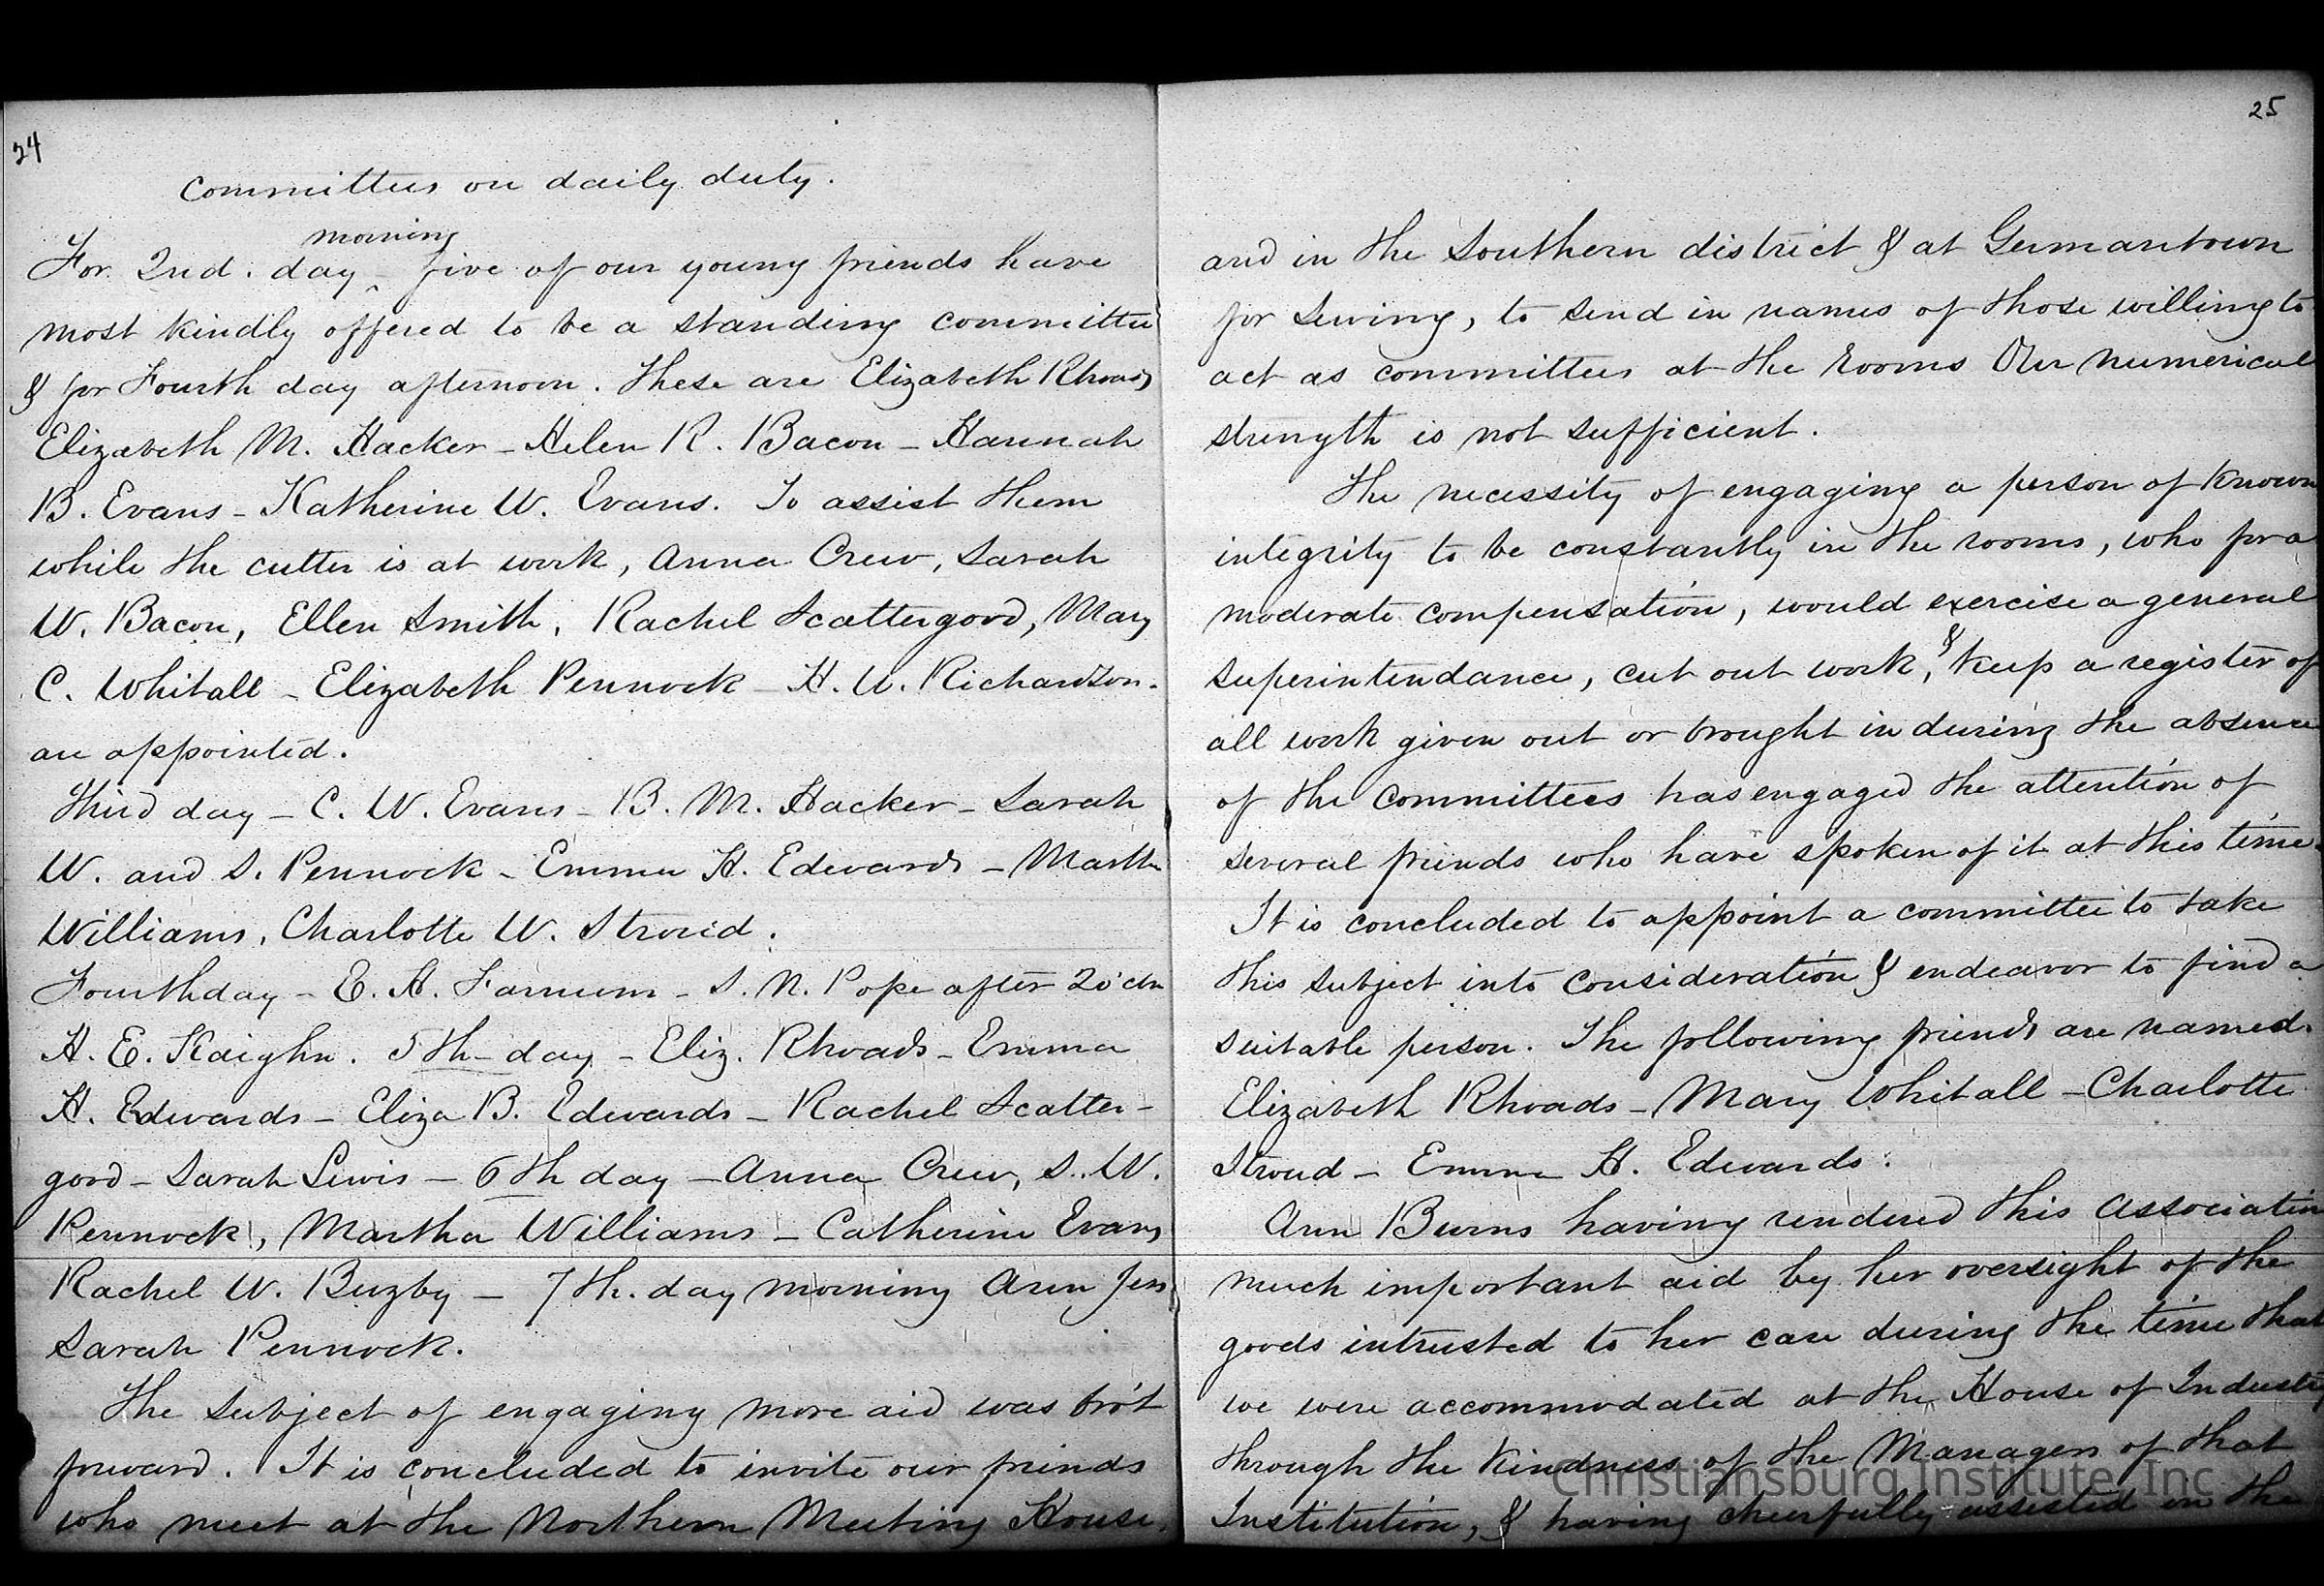 24
Committees on daily duty.
morning
For 2nd. day ‸ five of our young friends have
most kindly offered to be a standing committee
& for Fourth day afternoon. These are Elizabeth Rhoads
Elizabeth M. Hacker - Helen R. Bacon - Hannah
B. Evans - Katherine W. Evans. To assist them
while the cutter is at work, Anna Crew, Sarah
W. Bacon, Ellen Smith, Rachel Scattergood, Mary
C. Whitall - Elizabeth Pennock - H. W. Richardson.
are appointed.
Third day - C. W. Evans - B. M. Hacker - Sarah
W. and S. Pennock - Emma H. Edwards - Martha
Williams, Charlotte W. Stroud.
Fourthday - E. H. Farnum - S. N. Pope after 2 o'clo
H. E. Kaighn. 5th day - Eliz. Rhoads - Emma
H. Edwards - Eliza B. Edwards - Rachel Scatter-
good - Sarah Lewis - 6th day - Anna Crew, S. W.
Pennock, Martha Williams - Catherine Evans
Rachel W. Buzby - 7th. day morning Ann Jess
Sarah Pennock.
The subject of engaging more aid was bro't
forward. It is concluded to invite our friends
who meet at the Northern Meeting House.
25
and in the Southern district & at Germantown
for sewing, to send in names of those willing to
act as committees at the rooms Our numerical
strength is not sufficient.
The necessity of engaging a person of known
integrity to be constantly in the rooms, who for a
moderate compensation, would exercise a general
superintendance, cut out work, & keep a register of
all work given out or brought in during the absence
of the Committees has engaged the attention of
several friends who have spoken of it at this time.
It is concluded to appoint a committee to take
this subject into consideration & endeavor to find a
suitable person. The following friends are named.
Elizabeth Rhoads - Mary Whitall - Charlotte
Stroud - Emma H. Edwards.
Ann Burns having rendered this Association
much important aid by her oversight of the
goods intrusted to her care during the time that
we were accommodated at the House of Industry
through the kindness of the Managers of that
Institution, & having cheerfully assisted in the
Christiansburg Institute, Inc